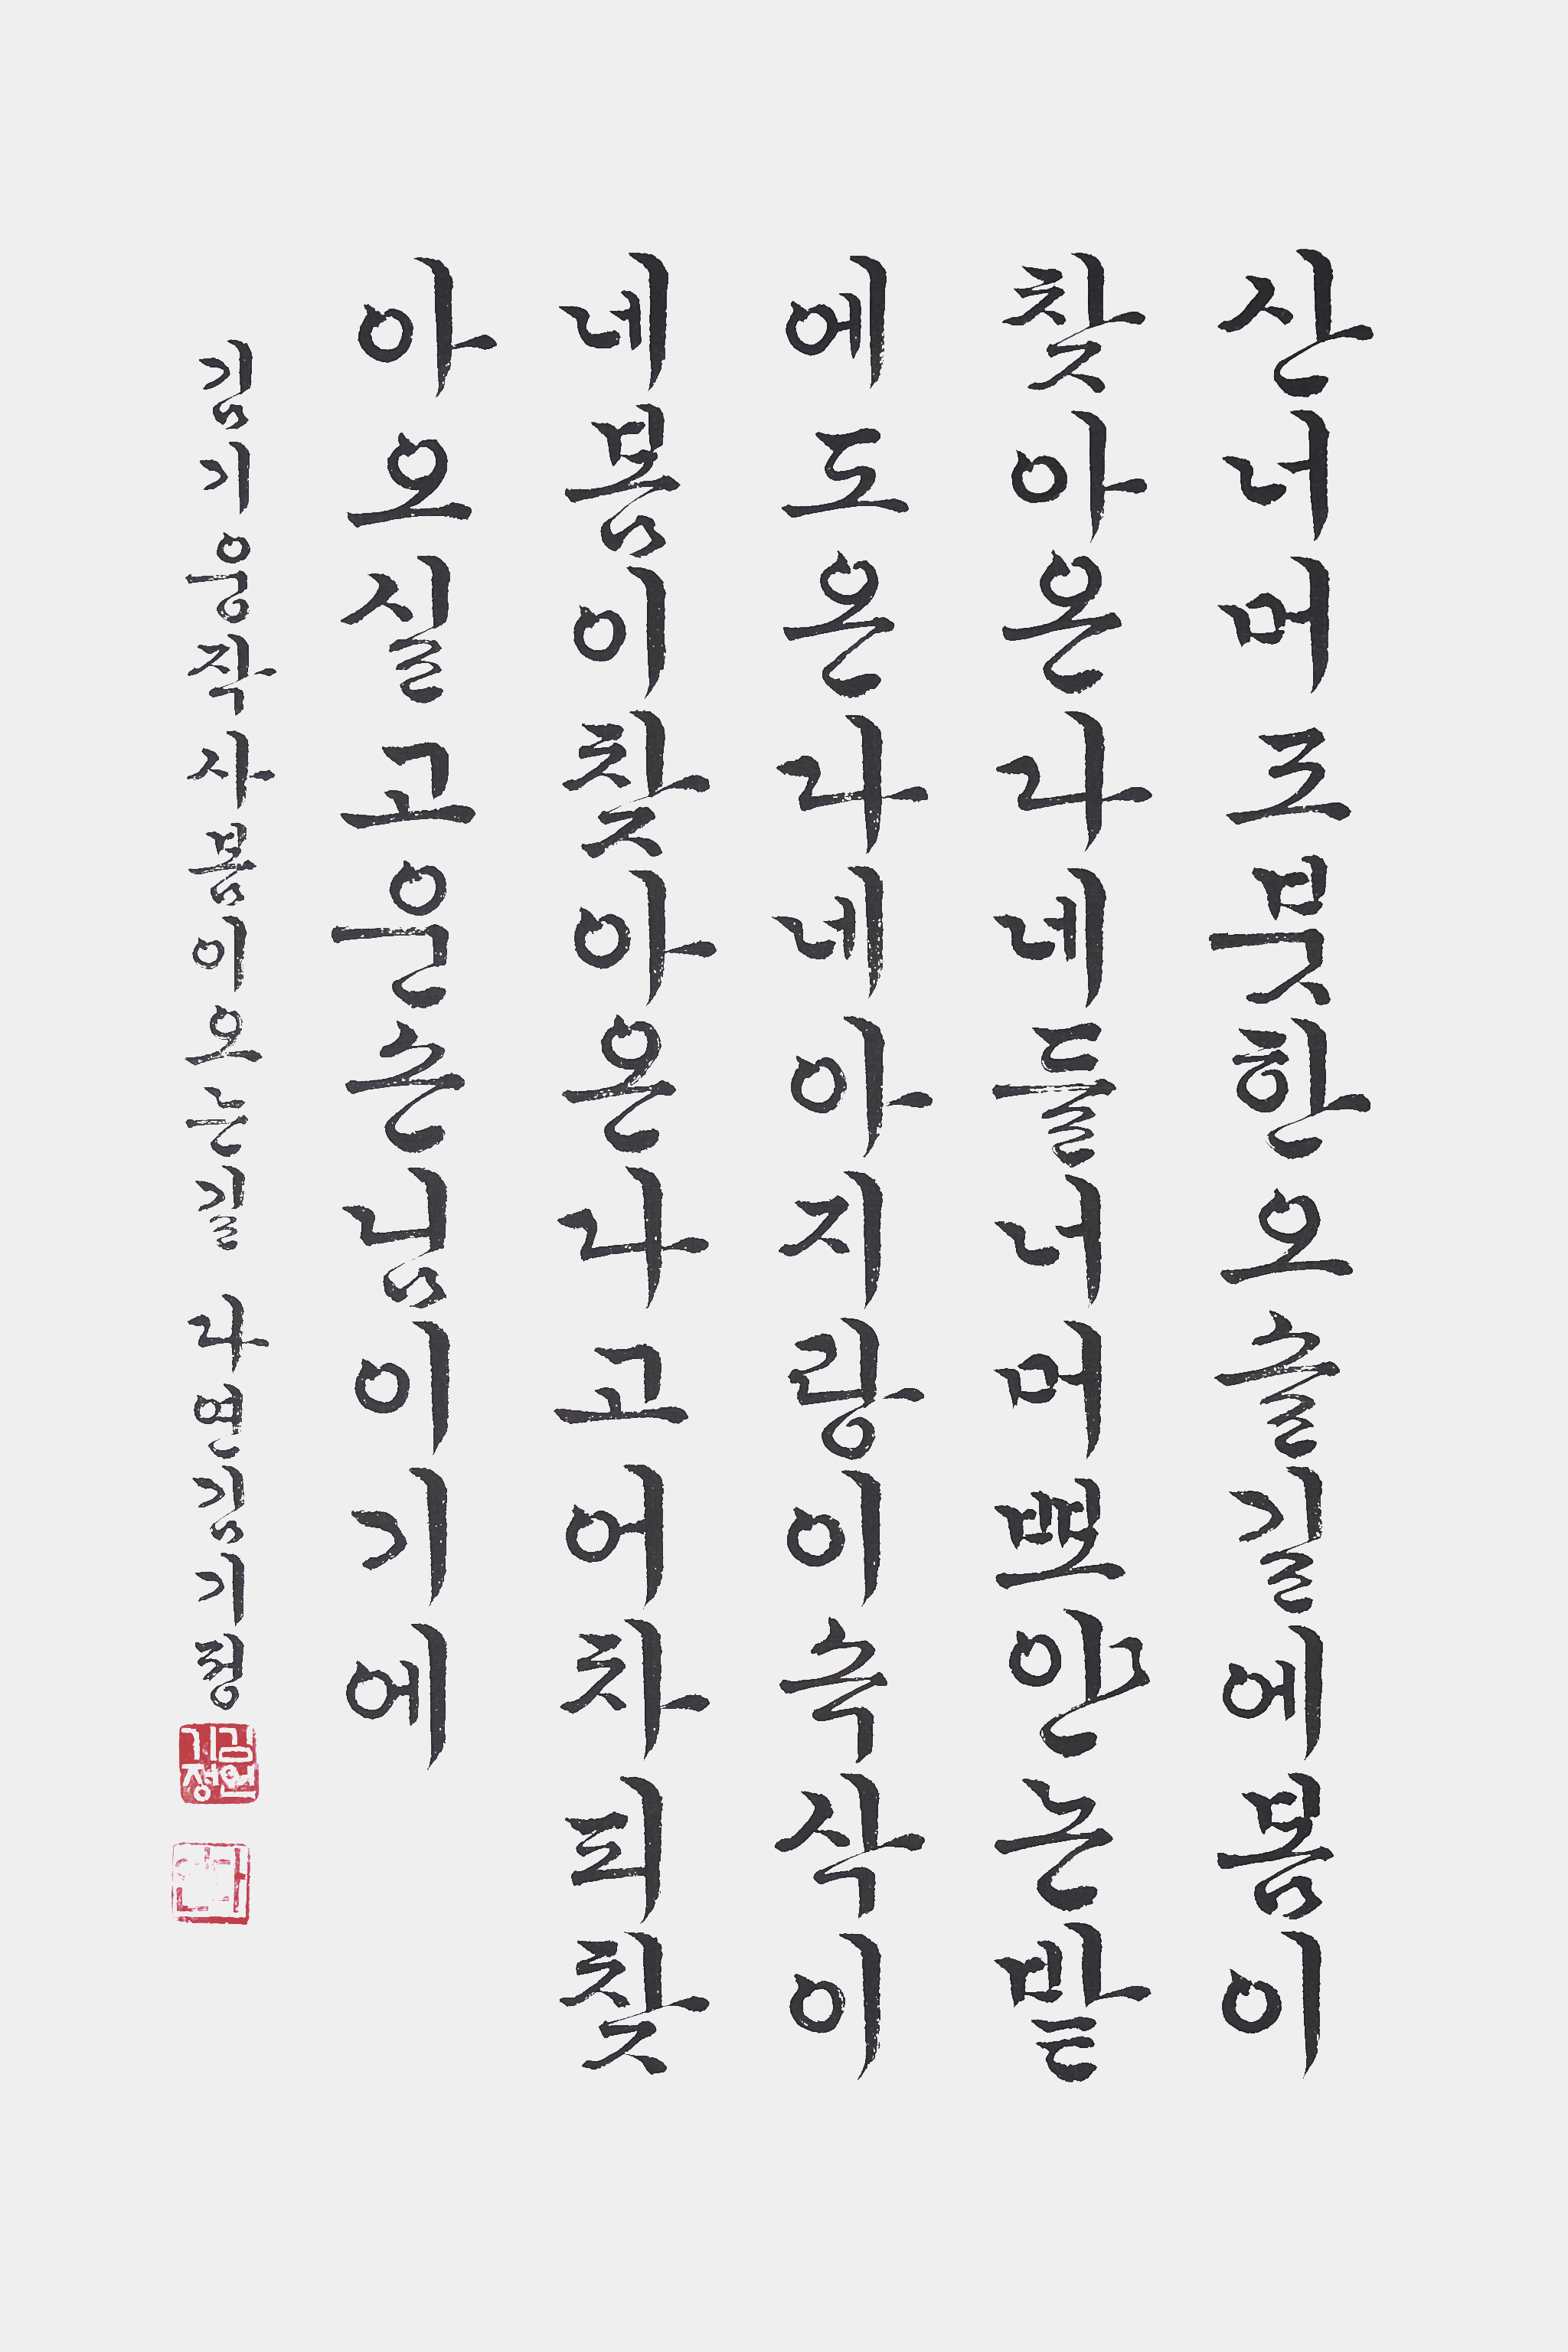 산너머조붓한오솔길에봄이
찾아온다네들너머뽀얀논밭
에도온다네아지랑이속삭이
네봄이찾아온다고어차피찾
아오실고운손님이기에
김기웅작사봄이오는길 다연김기정